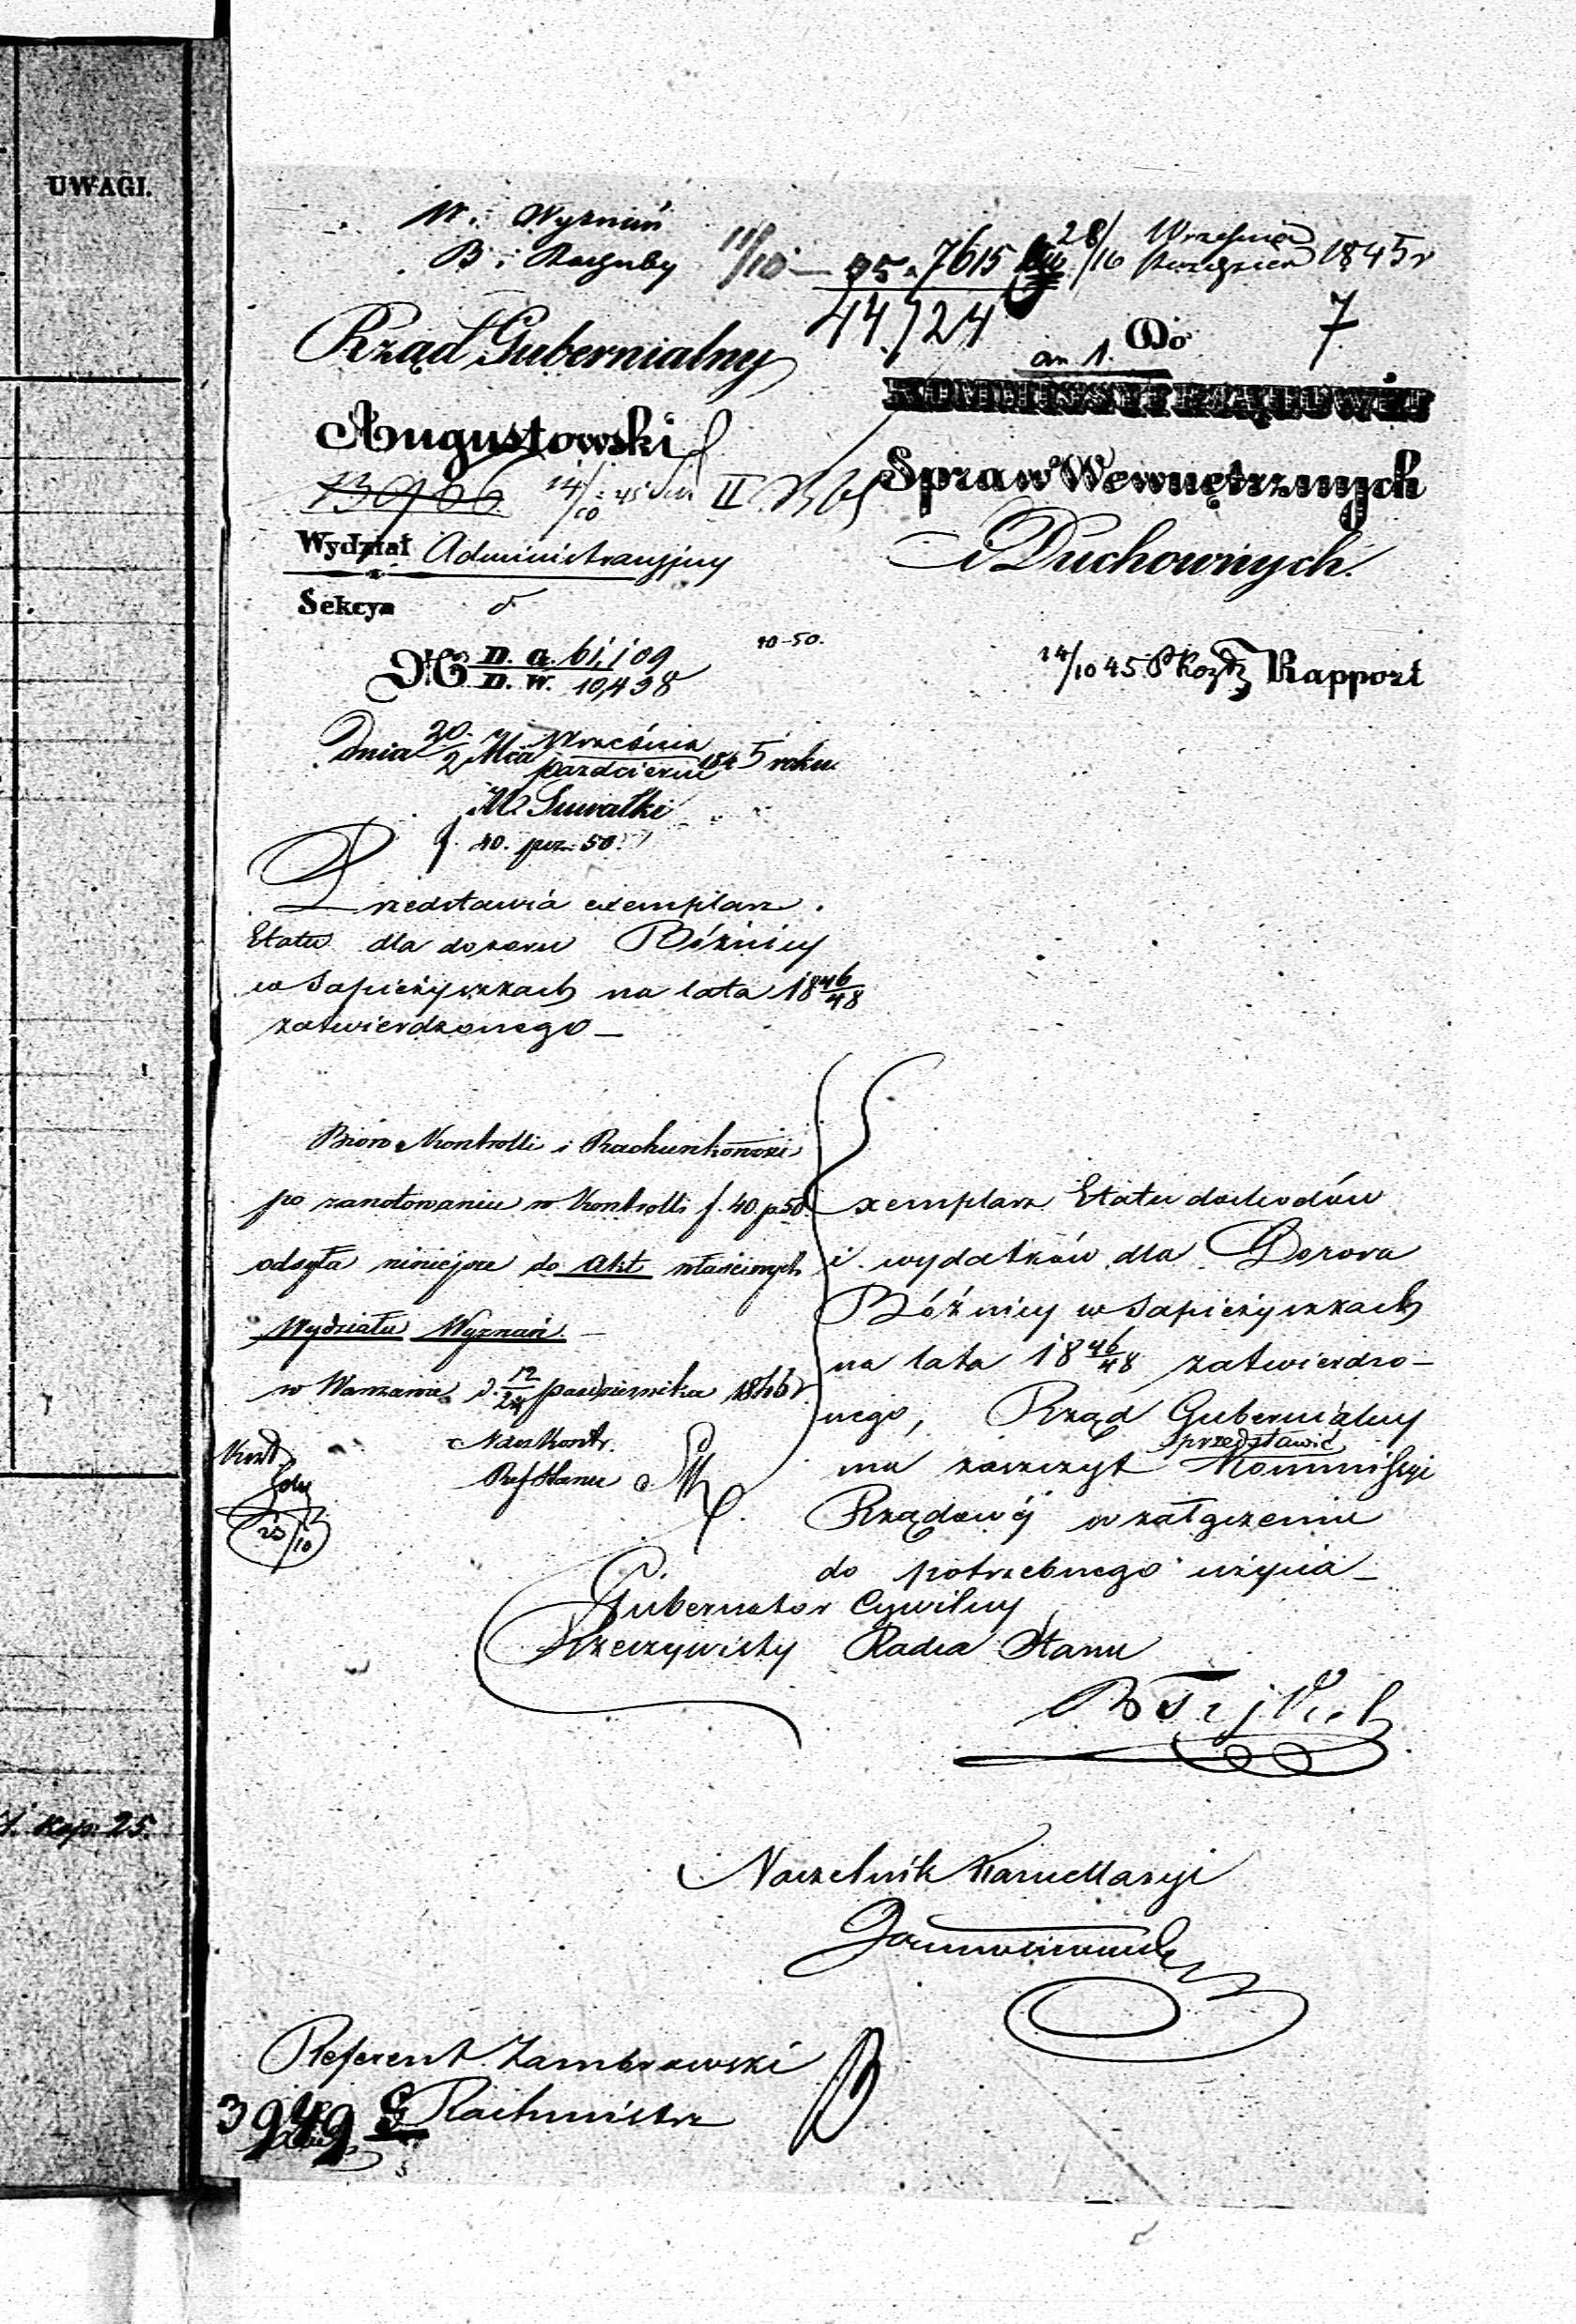 UWAGI.
W. i Wyznań
B. i Rachuby 11/10 — 95. 7615 28/16 Września Października 1845 r
44,124
7
Rząd Gubernialny
Do
an 1.
KOMMISSYI RZĄDOWÉJ
Augustowski
Spraw Wewnętrznych
i Duchownych.
13906 14/10 45 II
Wydział Administracyjny
Sekcya
40-50.
№ D. a. 61,109
D. W. 10,498
14/10 45 Rapport
Dnia 20/2 Mca Września/października 1845 roku
M. Suwałki
f. 40. poz. 50.
Przedstawia exemplarz
Etatu dla dozoru Bóżnicy
w Sapieżyszkach na lata 1846/48
zatwierdzonego —
Bióro Kontrolli i Rachunkowości
po zanotowaniu w Kontrolli f. 40. p 50.
odsyła niniejsze do Akt właściwych
Wydziału Wyznań —
w Warszawie d. 12/24 października 1845 r.
Nacz Kontr.
Ref Stanu
25/10
Exemplarz Etatu dochodów
i wydatków dla Dozoru
Bóżnicy w Sapieżyszkach
na lata 1846/48 zatwierdzo-
nego, Rząd Gubernialny
ma zaszczyt przedstawić Kommissyi
Rządowéj w załączeniu
do potrzebnego użycia —
P.
Gubernator Cywilny
Rzeczywisty Radca Stanu
Naczelnik Kancellaryi
Referent Zambrzowski
Rachmistrz
3949
kop. 25.